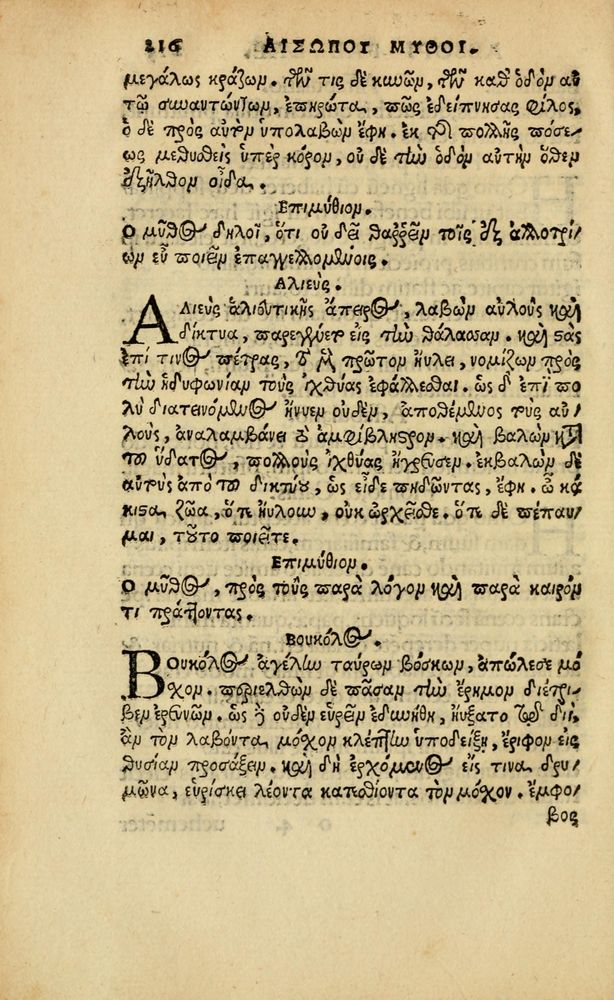 216 ΑΙΣΩΠΟΥ ΜΥΘΟΙ.
μεγάλως κράζων. τῶν τις δὲ κυνῶν, τῶν καθ ὁδὸν αυ
τῷ συναντώντων, ἐπηρώτα, πῶς ἐδείπνησας φίλος,
ὁ δὲ πρὸς αὐτὸν ὑπολαβὼν ἔφη. ἐκ τῆς πολλῆς πόσε-
ως μεθυσθεὶς ὑπὲρ κόρον, οὐ δὲ τὴν ὁδὸν αὐτὴν ὅθεν
ἐξῆλθον οἶδα.
Ἐπιμύθιον.
Ο μῦθος δηλοῖ, ὅτι οὐ δεῖ θαρρεῖν τοῖς ἐξ ἀλλοτρί
ων εὖ ποιεῖν ἐπαγγελλομένοις.
Ἁλιεύς.
ΑΛιεὺς ἁλιευτικῆς ἄπειρος, λαβὼν αὐλοὺς καὶ
δίκτυα, παρεγένετο εἰς τὴν θάλασσαν. καὶ στὰς
ἐπί τινος πέτρας, τὸ μὲν πρῶτον ηὔλει, νομίζων πρὸς
τὴν ἡδυφωνίαν τοὺς ἰχθύας ἐφάλλεσθαι. ὡς δ ἐπὶ πο
λὺ διατεινόμενος ἤνυεν οὐδὲν, ἀποθέμενος τοὺς αὐ
λοὺς, ἀναλαμβάνει τὸ ἀμφίβληστρον. καὶ βαλὼν κατὰ
τοῦ ὕδατος, πολλοὺς ἰχθύας ἤγρευσεν. ἐκβαλὼν δὲ
αὐτοὺς ἀπὸ τοῦ δικτύου, ὡς εἶδε πηδῶντας, ἔφη. ὦ κά
κιστα ζῶα, ὅτε ηὔλουν, οὐκ ὠρχεῖσθε. ὅτε δὲ πέπαυ
μαι, τοῦτο ποιεῖτε.
Ἐπιμύθιον.
Ο μῦθος, πρὸς τοὺς παρὰ λόγον καὶ παρὰ καιρόν
τι πράττοντας.
Βουκόλος.
ΒΟυκόλος ἀγέλην ταύρων βόσκων, ἀπώλεσε μό
χον. περιελθὼν δὲ πᾶσαν τὴν ἔρημον διέτρι
βεν ἐρευνῶν. ὡς δὲ οὐδὲν εὑρεῖν ἐδυνήθη, ηὔξατο τῷ διί,
ἂν τὸν λαβόντα μόχον κλέπτην ὑποδείξῃ, ἔριφον εἰς
θυσίαν προσάξειν. καὶ δὴ ἐρχόμενος εἴς τινα δρυ
μῶνα, εὑρίσκει λέοντα κατεσθίοντα τὸν μόχον. ἔμφο
βος